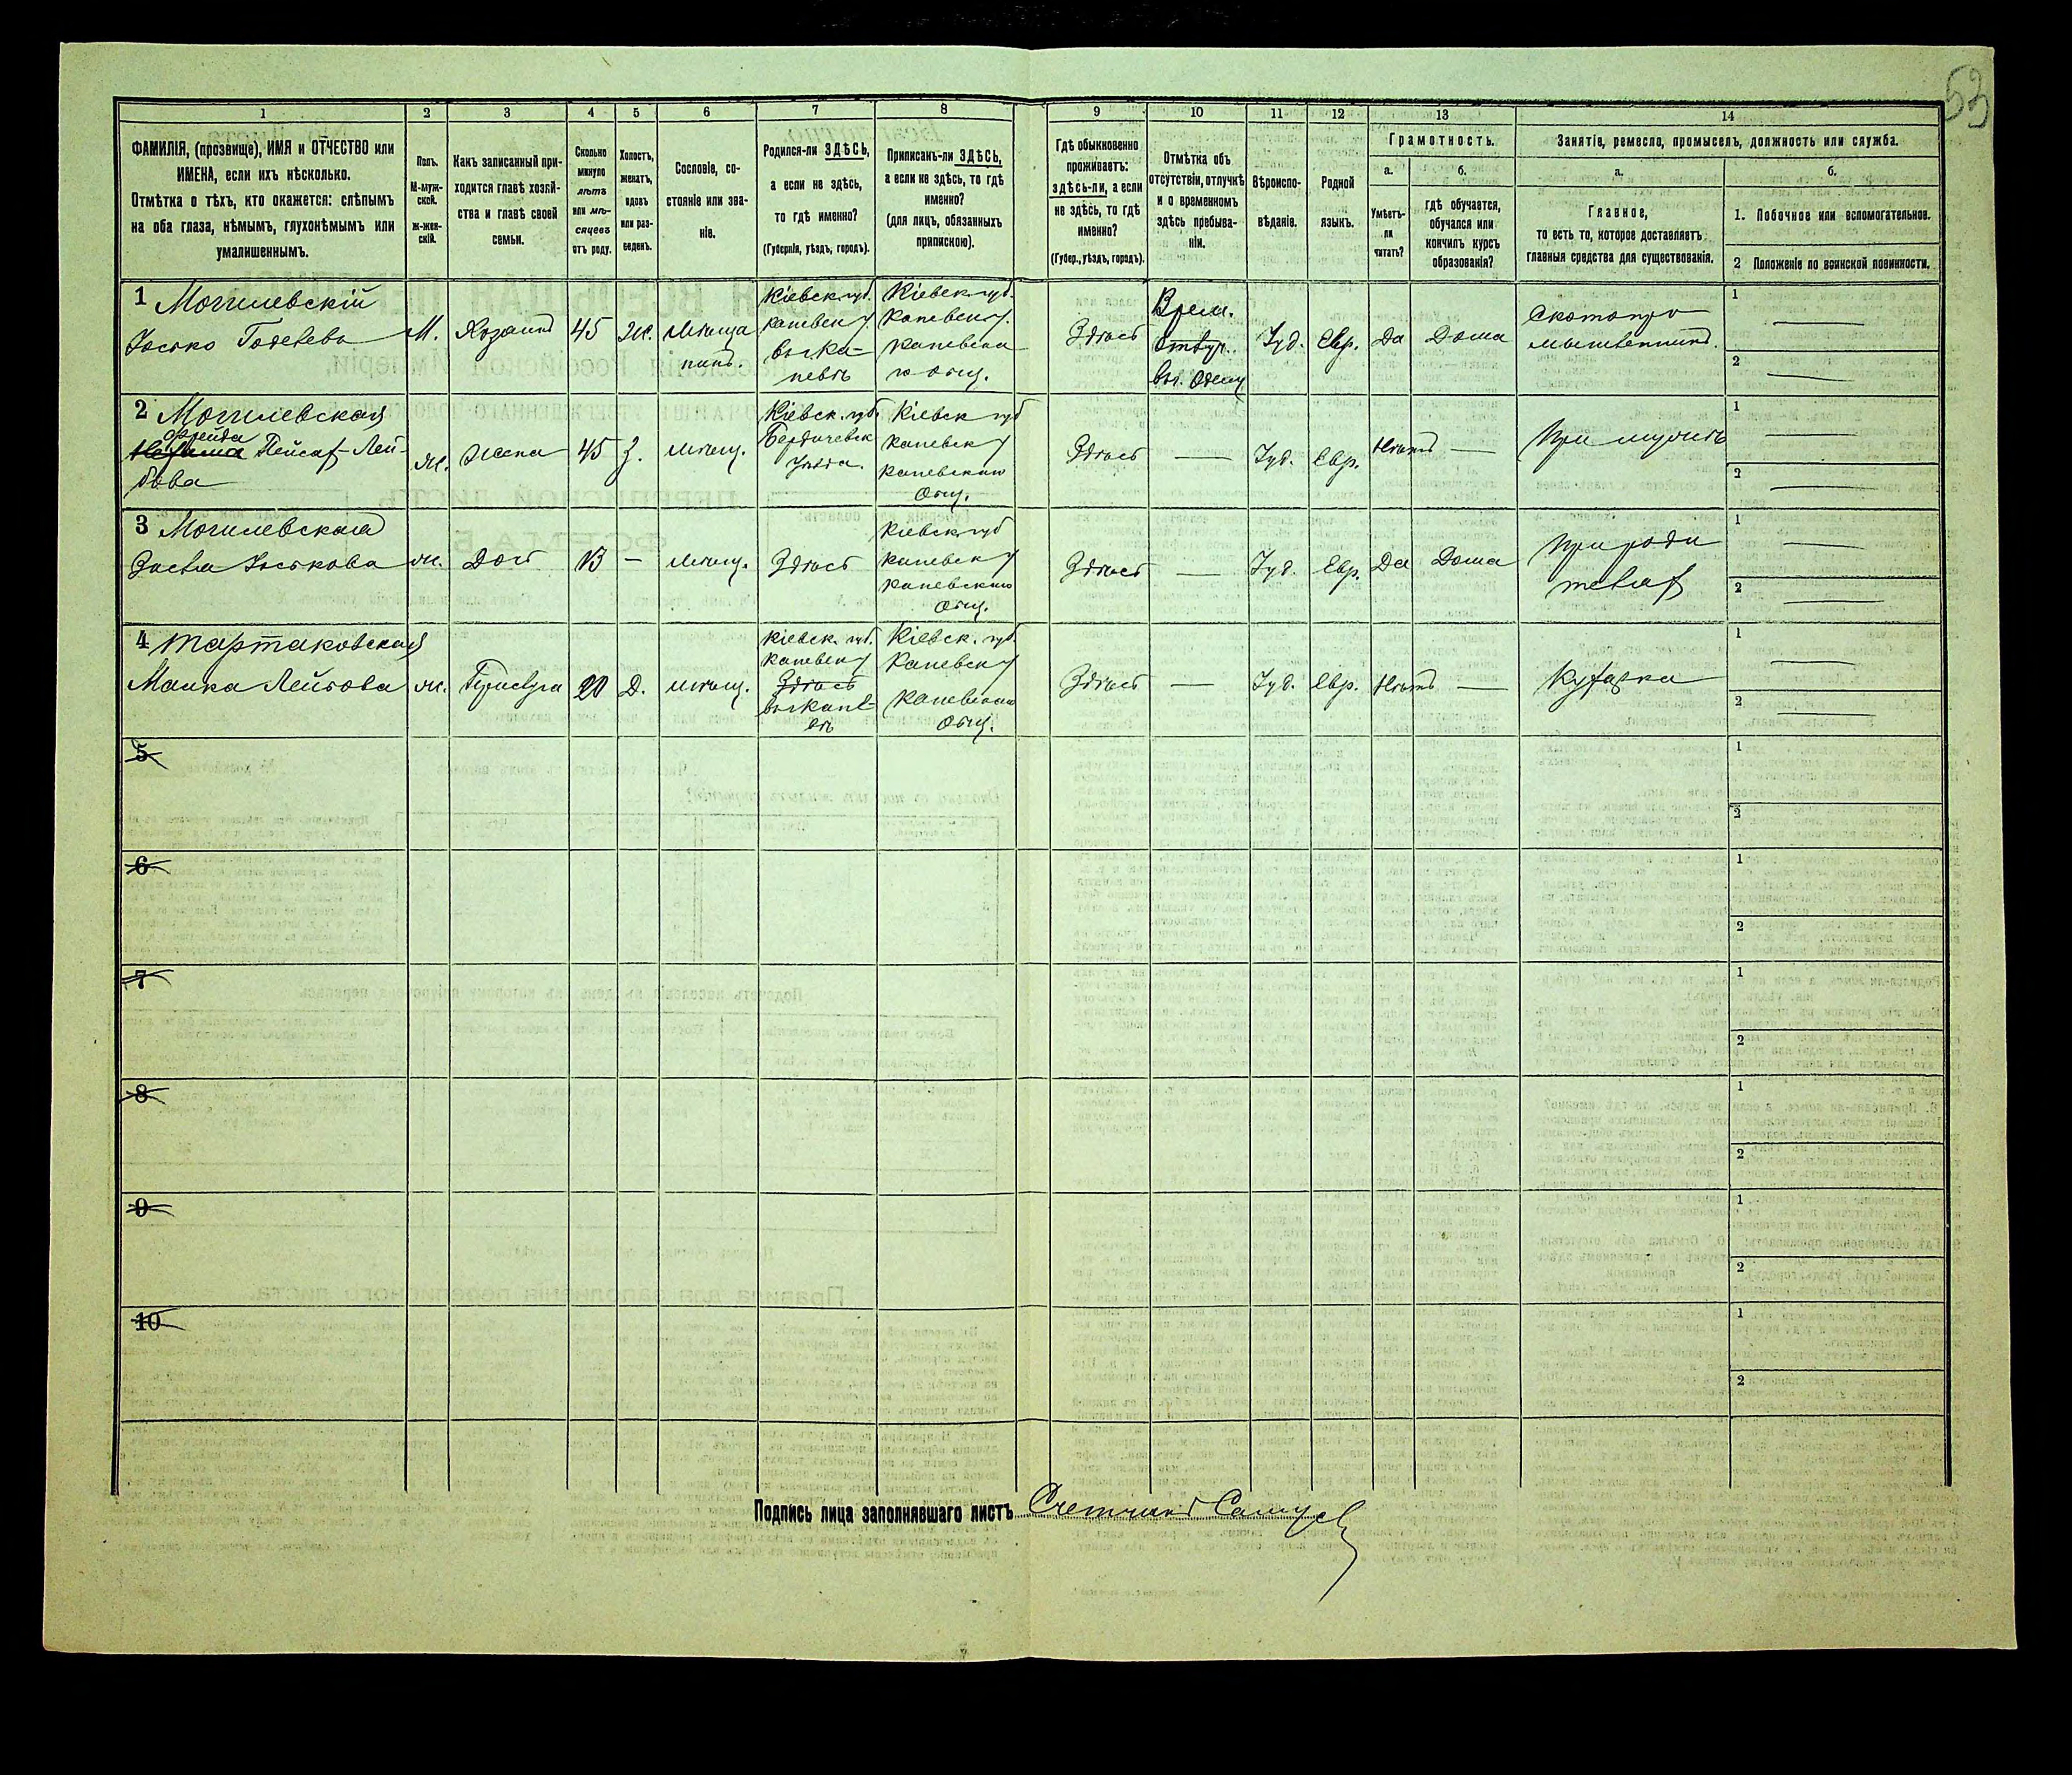 53
1 2 3 4 5 6 7 8 9 10 11 12 13 14
ФАМИЛІЯ, (прозвище), ИМЯ и ОТЧЕСТВО или
ИМЕНА, если ихъ нѣсколько.
Отмѣтка о тѣхъ, кто окажется: слѣпымъ
на оба глаза, нѣмымъ, глухонѣмымъ или
умалишеннымъ.
Полъ.
М-муж-
ской.
ж-жен-
скій.
Какъ записанный при-
ходится главѣ хозяй-
ства и главѣ своей
семьи.
Сколько
минуло
лѣтъ
или мѣ-
сяцевъ
отъ роду.
Холостъ,
женатъ,
вдовъ
или раз-
веденъ.
Сословіе, со-
стояніе или зва-
ніе.
Родился-ли ЗДѢСЬ,
а если не здѣсь,
то гдѣ именно?
(Губернія, уѣздъ, городъ).
Приписанъ-ли ЗДѢСЬ,
а если не здѣсь, то гдѣ
именно?
(для лицъ, обязанныхъ
припискою).
Гдѣ обыкновенно
проживаетъ:
здѣсь-ли, а если
не здѣсь, то гдѣ
именно?
(Губер., уѣздъ, городъ).
Отмѣтка объ
отсутствіи, отлучкѣ
и о временномъ
здѣсь пребыва-
ніи.
Вѣроиспо-
вѣданіе.
Родной
языкъ.
Грамотность.
а.
Умѣетъ-
ли
читать?
б.
гдѣ обучается,
обучался или
кончилъ курсъ
образованія?
Занятіе, ремесло, промыселъ, должность или служба.
а.
Главное,
то есть то, которое доставляетъ
главныя средства для существованія.
б.
1. Побочное или вспомогательное.
2 Положеніе по воинской повинности.
1 Могилевскій
Іосько
М.
Хозяинъ
45
Ж.
Мѣща
нинъ.
Кіевск. губ.
Каневск у.
въ Ка-
невѣ
Кіевск. губ.
Каневск у.
Каневска
го Общ.
Здѣсь
Врем.
Отлуч.
въ г. Одессу
Іуд.
Евр.
Да
Дома
Скотопро
мышленникъ.
1
2
2 Могилевская
Фрейда
Пейсах-Лей-
бова
ж.
Жена
45
З.
Мѣщ.
Кіевск. губ.
Бердичевск
уѣзда.
Кіевск губ
Каневск у
Каневскаго
Общ.
Здѣсь
—
Іуд.
Евр.
Нѣтъ
—
При мужѣ
1
2
3 Могилевская
Іоськова
ж.
Дочь
13
—
Мѣщ.
Здѣсь
Кіевск. губ
Каневск у
Каневскаго
Общ.
Здѣсь
—
Іуд.
Евр.
Да
Дома
При роди
телях
1
2
4 Тартаковская
Малка Лейбова
ж.
Прислуга
20
Д.
Мѣщ.
Кіевск. губ.
Каневск у
Здѣсь
въ Кане-
вѣ
Кіевск. губ.
Каневск у
Каневскаго
Общ.
Здѣсь
—
Іуд.
Евр.
Нѣтъ
—
Кухарка
1
2
5
1
2
6
1
2
7
1
2
8
1
2
9
1
2
10
1
2
Подпись лица заполнявшаго листъ Счетчикъ